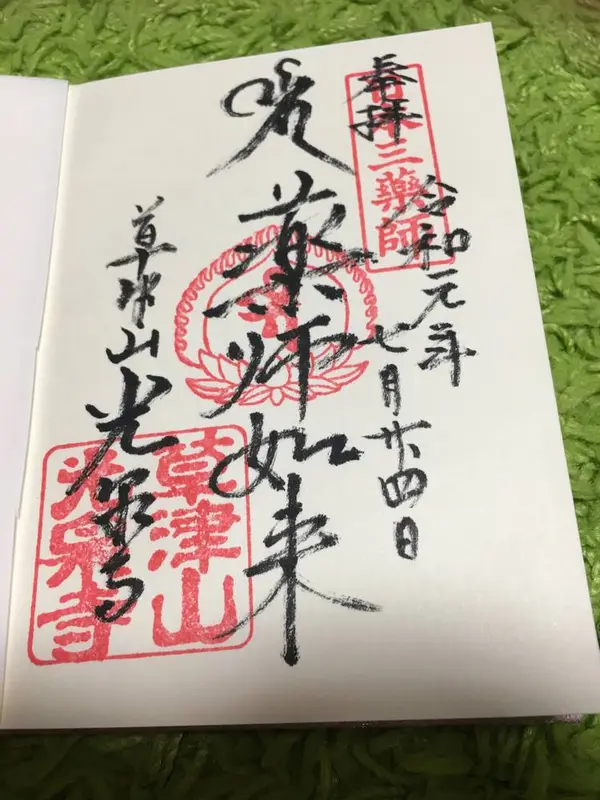 奉拝
日本三薬師
令和元年
七月廿四日
薬師如来
草津山 光泉寺
草津山
光泉寺